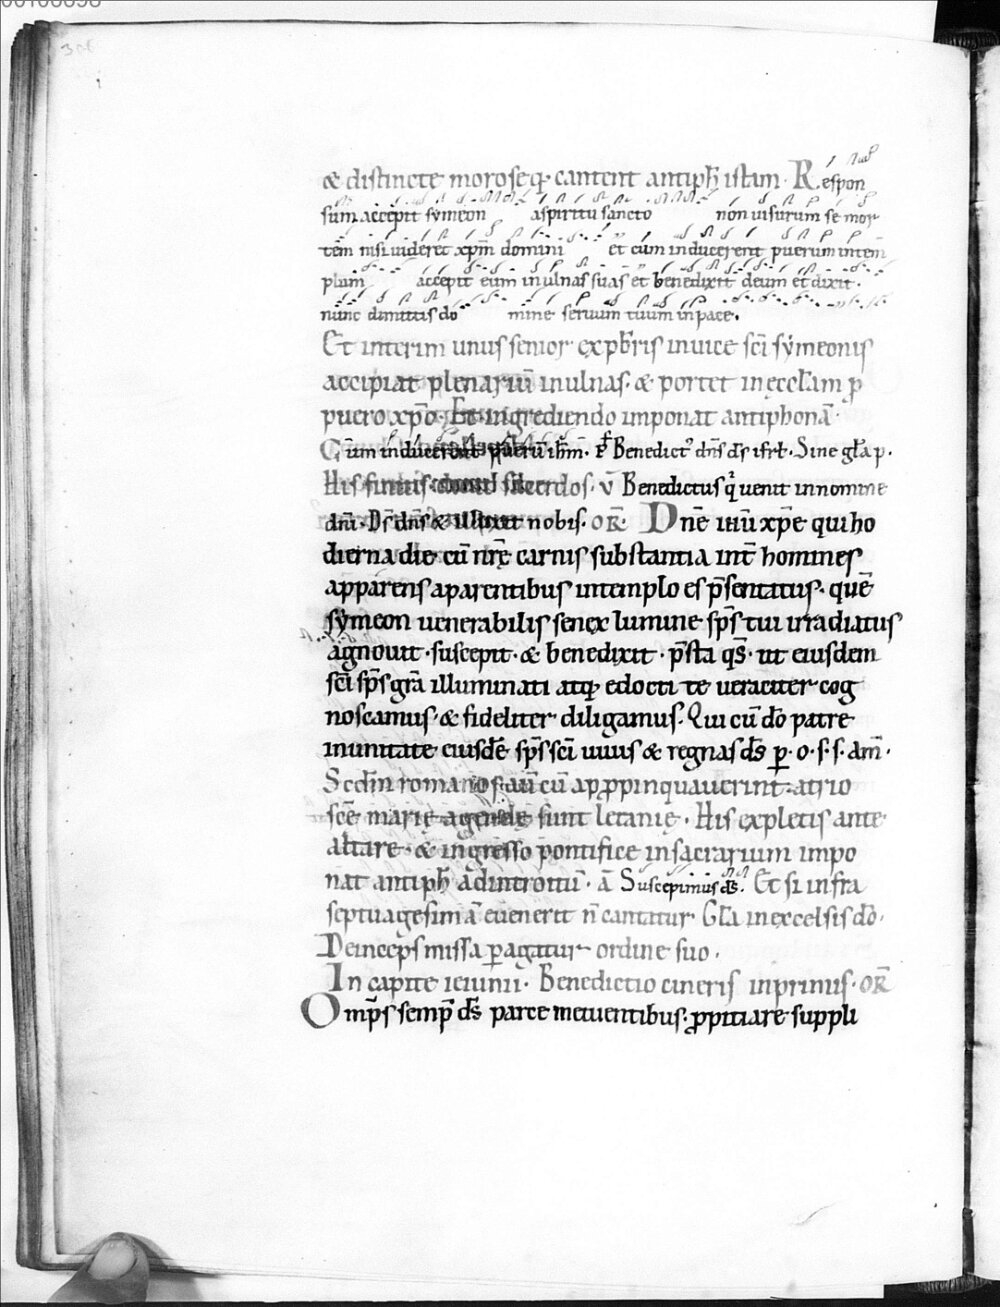 & distincte moroseq; cantent antiph̄ istam. Respon
sum accepit symeon aspiritu sancto non uisurum se mor
tem nisi uideret xp̄m domini et cum inducerent puerum intem
plum accepit eum inulnas suas et benedixit deum et dixit.
nunc dimittis do mine seruum tuum inpace.
Et interim unus senior exp̄bris inuice sc̄i symeonis
accipiat plenariū inulnas. & portet inęccl̄am p̄
puero xp̄o. Et ingrediendo imponat antiphonā.
Cum inducerent puerū ih̄m. Benedict' dn̄s ds̄ isrl̄. Sine gl̄a p.
His finitis sacerdos. v̄ Benedictus q̇ uenit innomine
dn̄i. Ds̄ dn̄s & illuxit nobis. OR̄. Dn̄e ih̄ū xp̄e qui ho
dierna die cū nr̄ę carnis substantia int̄ homines
apparens aparentibus intemplo es p̄sentatus. quē
symeon uenerabilis senex lumine sp̄s tui irradiatus
agnouit. suscepit. & benedixit. p̄sta qs̄. ut eiusdem
sc̄i sp̄s gr̄a illuminati atq; edocti te ueraciter cog
noscamus. & fideliter diligamus. Qui cū dō patre
inunitate eiusdē sp̄s sc̄i uiuis & regnas ds̄ p. o. s. s. am̄.
Sed̄m romanos aū cū appropinquauerint atrio
sc̄ę marię agendę sunt letanię. His expletis ante
altare. & ingresso pontifice insacrarium impo
nat antiph̄ adintroitū. ā Suscepimus ds̄. Et si infra
septuagesimā euenerit n̄ cantatur Gl̄a inexcelsis dō.
Deincep̄s missa peragatur ordine suo.
In capite ieiunii. Benedictio cineris inprimis. OR̄
Omp̄s semp̄ ds̄ parce metuentibus. ꝓpitiare suppli